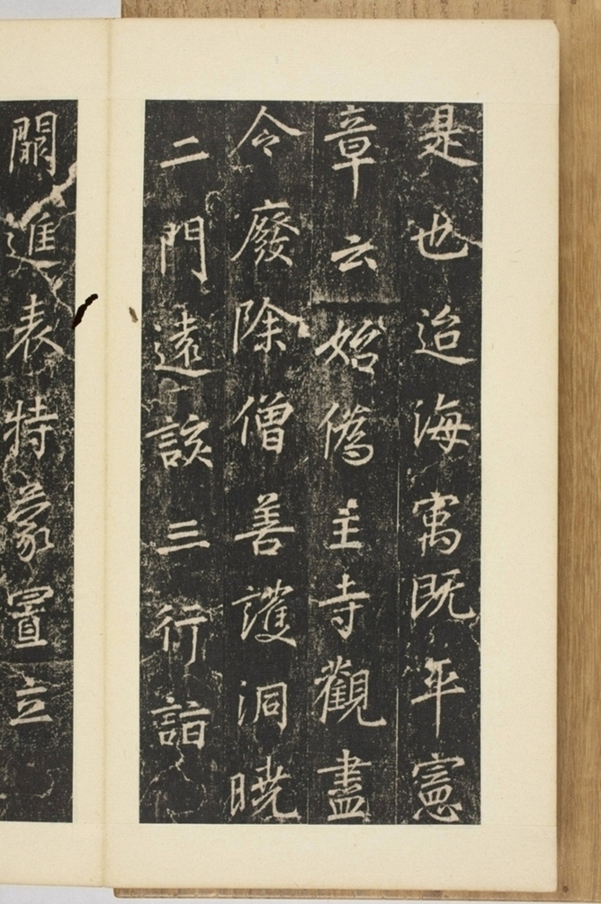 是也迨海寓既平憲
章云始僞主寺觀盡
令廢除僧善護洞曉
二門遠該三行詣
闕進表特蒙置立